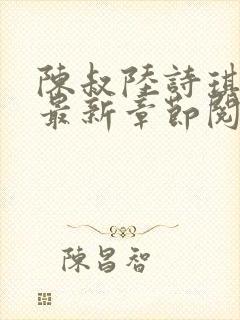 陳叔陸詩琪
最新章節閱
陳昌智